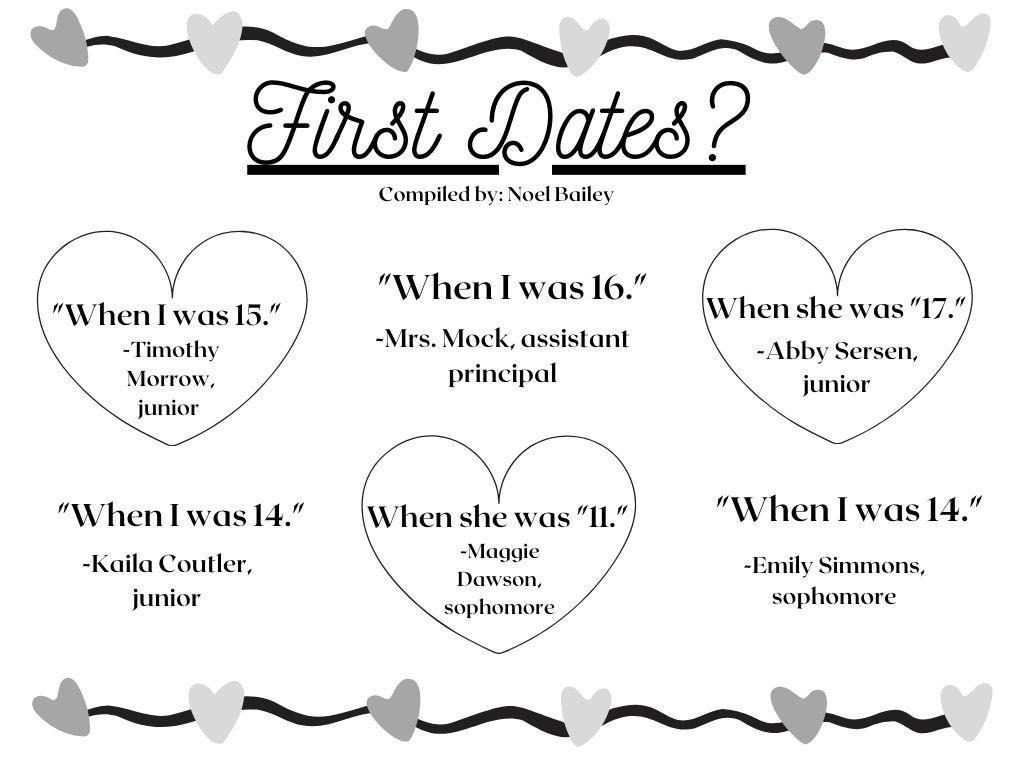 First Dates?
Compiled by: Noel Bailey
"When I was 15."
-Timothy
Morrow,
junior
"When I was 16."
-Mrs. Mock, assistant
principal
When she was "17."
-Abby Sersen,
junior
"When I was 14."
-Kaila Coutler,
junior
When she was "11."
-Maggie
Dawson,
sophomore
"When I was 14."
-Emily Simmons,
sophomore